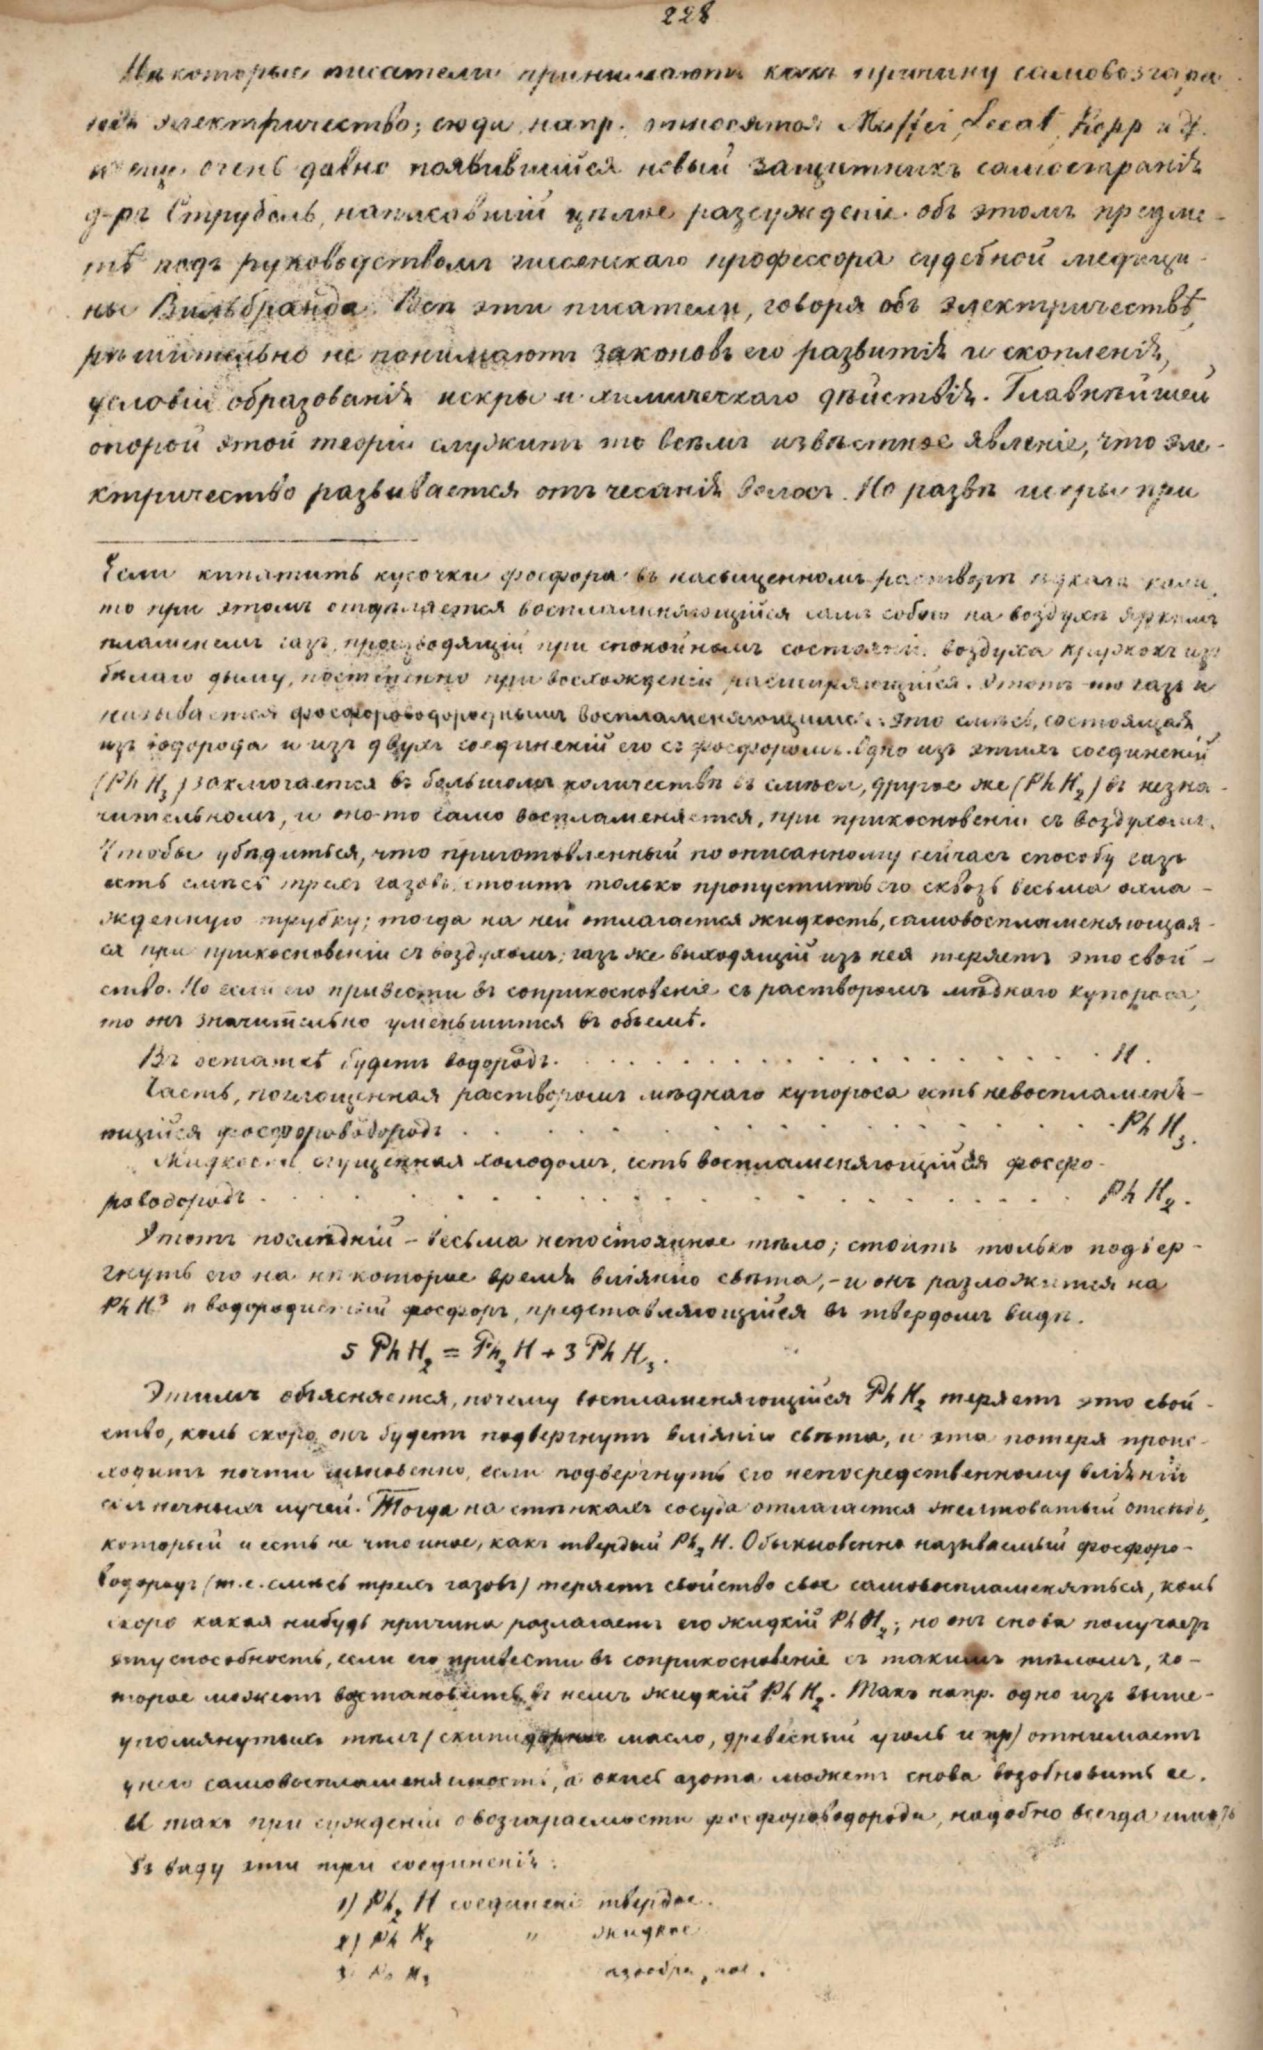 228
Нѣкоторые писатели принимаютъ какъ причину самовозгара-
нія электричество; сюда, напр. относятся Maffei, Lecat, Kopp и др.
и еще очень давно появившійся новый защитникъ самосгаранія
д-ръ Струбель, написавшій цѣлое разсужденіе объ этомъ предме-
тѣ подъ руководствомъ гисенскаго профессора судебной медици-
ны Вильбранда. Всѣ эти писатели, говоря объ электричествѣ,
рѣшительно не понимаютъ законовъ его развитія и скопленія,
условій образованія искры и химическаго дѣйствія. Главнѣйшей
опорой этой теоріи служитъ то всѣмъ извѣстное явленіе, что эле-
ктричество развивается отъ чесанія волосъ. Но развѣ искры при
Если кипятить кусочки фосфора въ насыщенномъ растворѣ ѣдкаго кали,
то при этомъ отдѣляется воспламеняющійся самъ собою на воздухѣ яркимъ
пламенемъ газъ, производящій при спокойномъ состояніи воздуха кружокъ изъ
бѣлаго дыму, постепенно при восхожденіи расширяющійся. Этотъ-то газъ и
называется фосфороводороднымъ воспламеняющимся: это смѣсь, состоящая
изъ водорода и изъ двухъ соединеній его съ фосфоромъ. Одно изъ этихъ соединеній
(Ph H₃) заключается въ большомъ количествѣ въ смѣси, другое же (Ph H₂) въ незна-
чительномъ, и это-то само воспламеняется, при прикосновеніи съ воздухомъ.
Чтобы убѣдиться, что приготовленный по описанному сейчасъ способу газъ
есть смѣсь трехъ газовъ, стоитъ только пропустить его сквозь весьма охла-
жденную трубку; тогда на ней отлагается жидкость, самовоспламеняющая-
ся при прикосновеніи съ воздухомъ; газъ же выходящій изъ нея теряетъ это свой-
ство. Но если его привести въ соприкосновеніе съ растворомъ мѣднаго купороса,
то онъ значительно уменьшится въ объемѣ.
Въ остаткѣ будетъ водородъ . . . . . . . . . . . . . . . . H.
Часть, поглощенная растворомъ мѣднаго купороса есть невоспламеня-
ющійся фосфороводородъ . . . . . . . . . . . . . . . . Ph H₃.
Жидкость, сгущенная холодомъ, есть воспламеняющійся фосфо-
роводородъ . . . . . . . . . . . . . . . . Ph H₂.
Этотъ послѣдній – весьма непостоянное тѣло; стоитъ только подвер-
гнуть его на нѣкоторое время вліянію свѣта, – и онъ разложится на
Ph H³ и водородистый фосфоръ, представляющійся въ твердомъ видѣ.
5 Ph H₂ = Ph₂ H + 3 Ph H₃.
Этимъ объясняется, почему воспламеняющійся Ph H₂ теряетъ это свой-
ство, коль скоро онъ будетъ подвергнутъ вліянію свѣта, и эта потеря проис-
ходитъ почти мгновенно, если подвергнуть его непосредственному вліянію
солнечныхъ лучей. Тогда на стѣнкахъ сосуда отлагается желтоватый отсѣдъ,
который и есть не что иное, какъ твердый Ph₂ H. Обыкновенно называемый фосфоро-
водородъ (т.е. смѣсь трехъ газовъ) теряетъ свойство свое самовоспламеняться, коль
скоро какая нибудь причина разлагаетъ его жидкій Ph H₂; но онъ снова получаетъ
эту способность, если его привести въ соприкосновеніе съ такимъ тѣломъ, ко-
торое можетъ возстановить въ немъ жидкій Ph H₂. Такъ напр. одно изъ выше-
упомянутыхъ тѣлъ (скипидарное масло, древесный уголь и пр) отнимаетъ
у него самовоспламеняемость, а окись азота можетъ снова возобновить ее.
И такъ при сужденіи о возгараемости фосфороводорода, надобно всегда имѣть
въ виду эти три соединенія:
1) Ph₂ H соединеніе твердое.
2) Ph H₂ " жидкое
3 Ph H₃ газообразное.